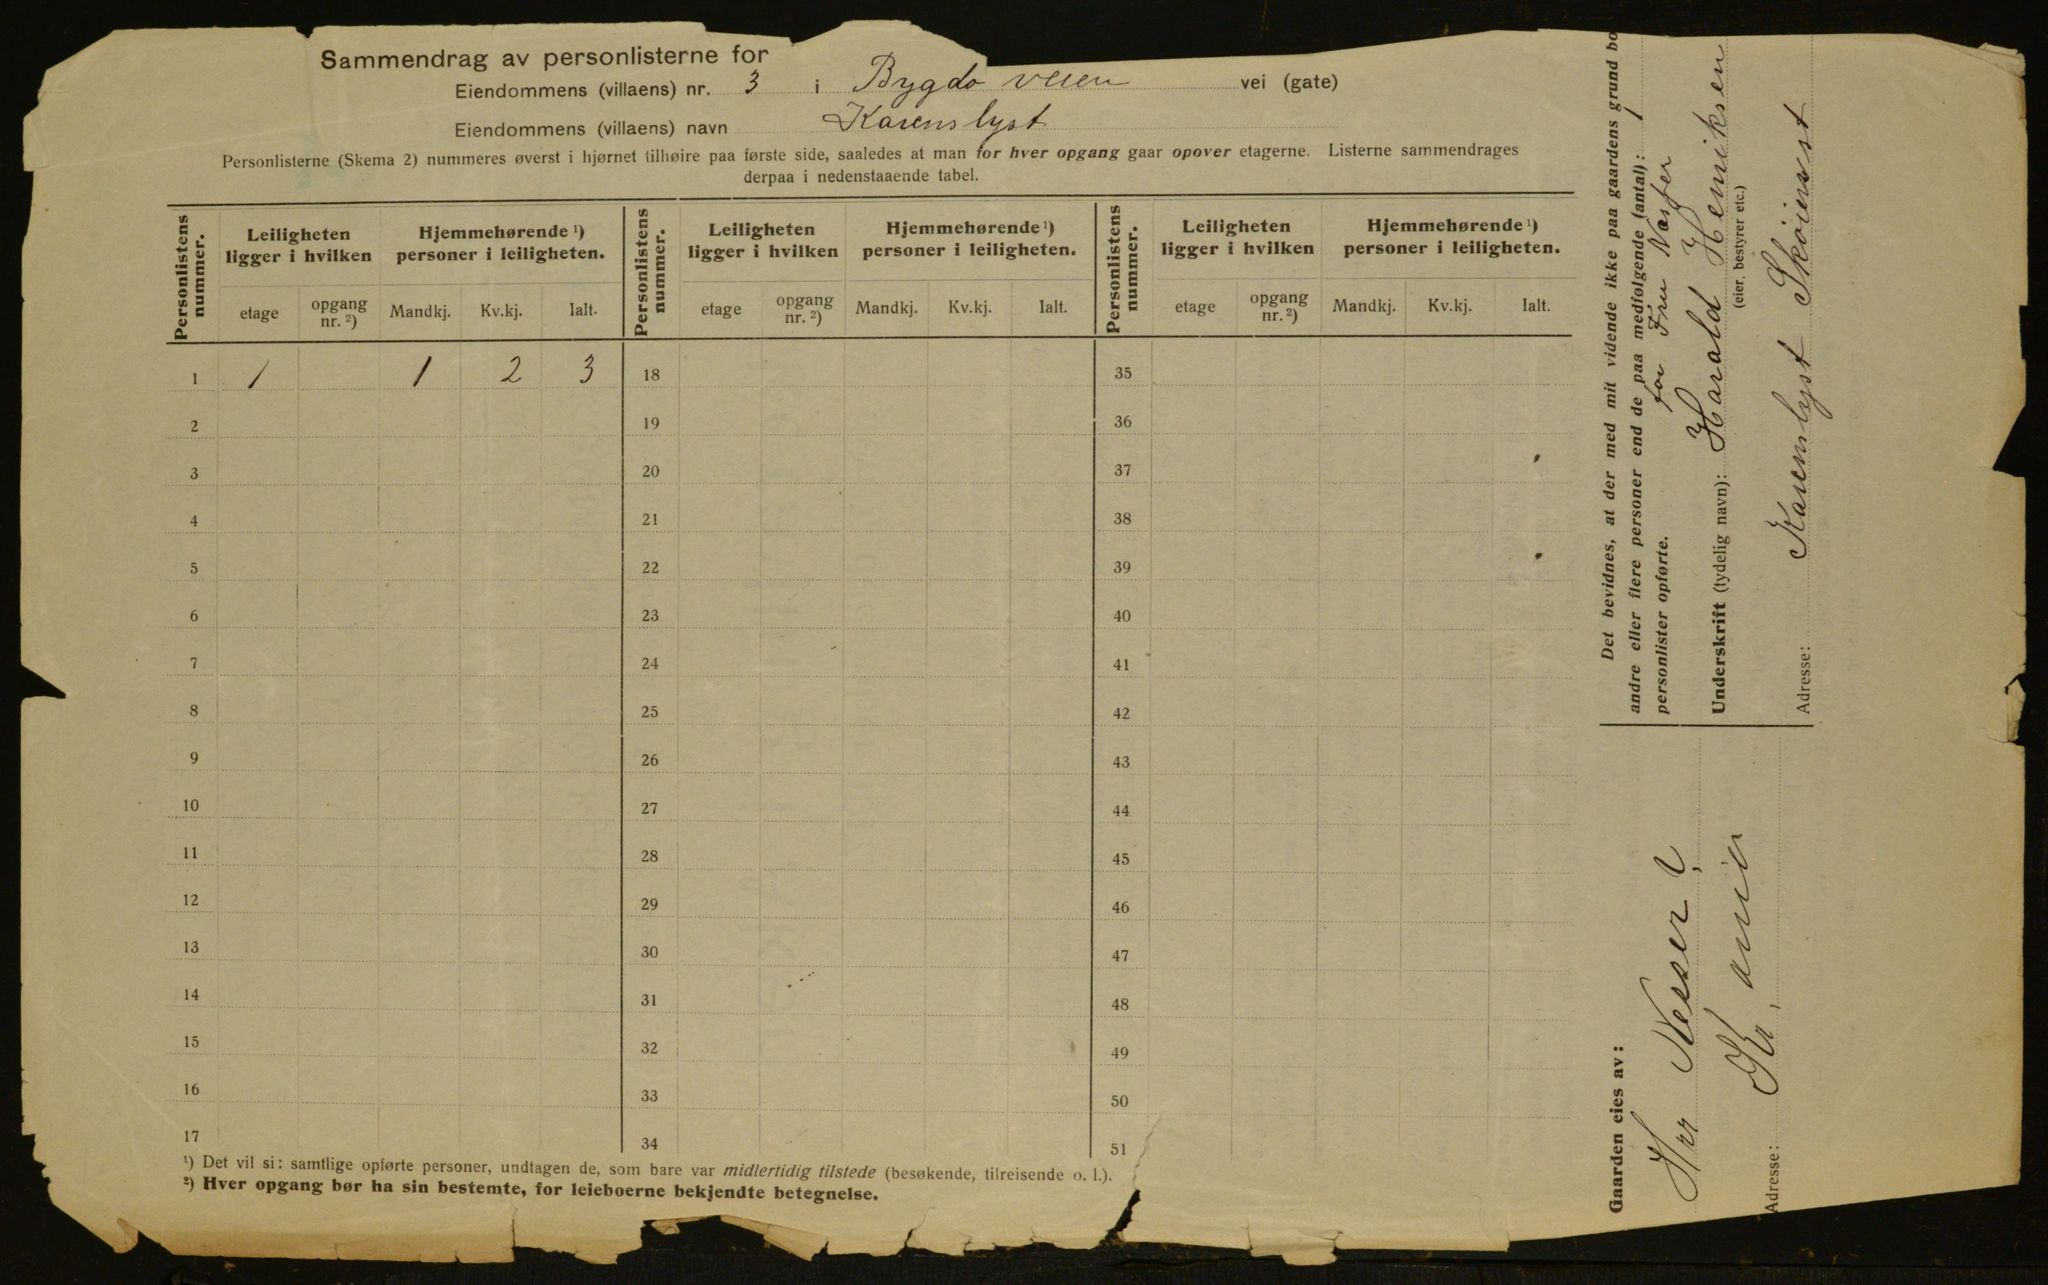 Sammendrag av personlisterne for
Eiendommens (villaens) nr. 3 i Bygdo veien vei (gate)
Eiendommens (villaens) navn Karenslyst
Personlisterne (Skema 2) nummeres øverst i hjørnet tilhøire paa første side, saaledes at man for hver opgang gaar opover etagerne. Listerne sammendrages
derpaa i nedenstaaende tabel.
Personlistens nummer. Leiligheten ligger i hvilken Hjemmehørende ¹) personer i leiligheten. Personlistens nummer. Leiligheten ligger i hvilken Hjemmehørende ¹) personer i leiligheten. Personlistens nummer. Leiligheten ligger i hvilken Hjemmehørende ¹) personer i leiligheten.
etage opgang nr. ²) Mandkj. Kv.kj. Ialt. etage opgang nr. ²) Mandkj. Kv.kj. Ialt. etage opgang nr. ²) Mandkj. Kv.kj. Ialt.
1 1 1 2 3 18 35
2 19 36
3 20 37
4 21 38
5 22 39
6 23 40
7 24 41
8 25 42
9 26 43
10 27 44
11 28 45
12 29 46
13 30 47
14 31 48
15 32 49
16 33 50
17 34 51
¹) Det vil si: samtlige opførte personer, undtagen de, som bare var midlertidig tilstede (besøkende, tilreisende o. l.).
²) Hver opgang bør ha sin bestemte, for leieboerne bekjendte betegnelse.
Det bevidnes, at der med mit vidende ikke paa gaardens grund bo
andre eller flere personer end de paa medfølgende (antal): 1
personlister opførte. for Fru
Underskrift (tydelig navn): Harald Henriksen
(eier, bestyrer etc.)
Adresse: Karenslyst Skøienst
Gaarden eies av:
Hrr
Adresse: Kr,